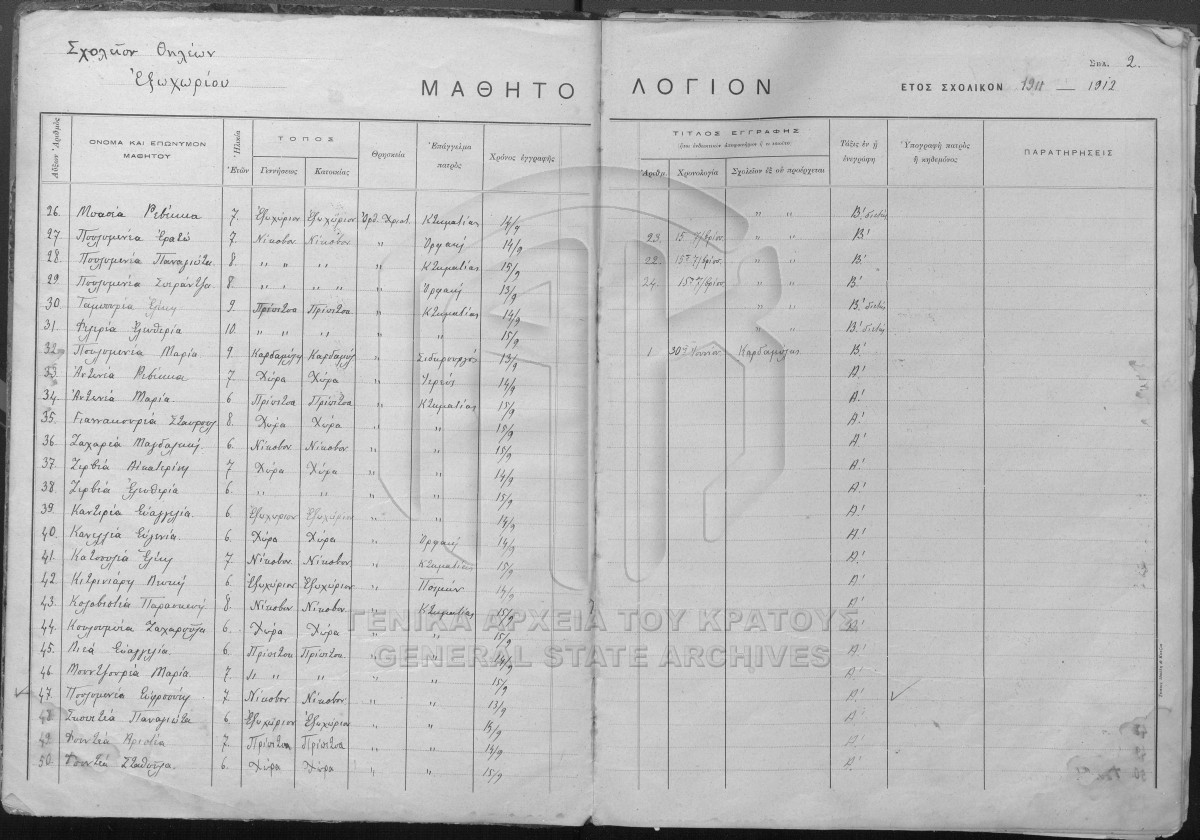 Σχολεῖον Θηλέων
Ἐξωχωρίου
Σελ. 2.
ΜΑΘΗΤΟΛΟΓΙΟΝ
ΕΤΟΣ ΣΧΟΛΙΚΟΝ 1911 — 1912
Αὔξων Ἀριθμός ΟΝΟΜΑ ΚΑΙ ΕΠΩΝΥΜΟΝ ΜΑΘΗΤΟΥ Ἡλικία Ἐτῶν ΤΟΠΟΣ Γεννήσεως Κατοικίας Θρησκεία Ἐπάγγελμα πατρὸς Χρόνος ἐγγραφῆς ΤΙΤΛΟΣ ΕΓΓΡΑΦΗΣ Ἀριθμ. Χρονολογία Σχολεῖον ἐξ οὗ προέρχεται Τάξις ἐν ᾗ ἐνεγράφη Ὑπογραφὴ πατρὸς ἢ κηδεμόνος ΠΑΡΑΤΗΡΗΣΕΙΣ
26. Μπασέα Ρεβέκκα 7. Ἐξωχώριον Ἐξωχώριον Ὀρθ. Χριστ. Κτηματίας 14/9 " " Β' διετής
27. Πουλυμενέα Ἐρατώ 7 Νίκοβον Νίκοβον " Ὀρφανή 14/9 23. 15 7/βρίου " " Β'
28. Πουλυμενέα Παναγιώτα 8. " " " " Κτηματίας 15/9 22. 15η 7/βρίου " " Β'
29. Πουλυμενέα 8. " " " " " Ὀρφανή 13/9 24. 15η 7/βρίου " " Β'
30. Ταμπουρέα Ἑλένη 9. Πρίπιτσα Πρίπιτσα " Κτηματίας 14/9 " " Β' διετής
31. Ἐλευθερία 10. " " " " " 15/9 " " Β' διετής
32. Πουλυμενέα Μαρία 9. Καρδαμύλη Καρδαμύλ " Σιδηρουργός 13/9 1 30η Ἰουνίου Καρδαμύλης Β'
33. Ἀντωνέα Ρεβέκκα 7. Χώρα Χώρα " Ἱερεύς 14/9 Α'
34. Ἀντωνέα Μαρία 6 Πρίπιτσα Πρίπιτσα " Κτηματίας 15/9 Α'
35. Γιαννακουρέα Σταυρούλ 8. Χώρα Χώρα " " 15/9 Α'
36. Ζαχαρέα Μαγδαληνή 6. Νίκοβον Νίκοβον " " 15/9 Α'
37. Ζερβέα Αἰκατερίνη 7 Χώρα Χώρα " " 14/9 Α'
38. Ζερβέα Ἐλευθερία 6. " " " " 15/9 Α'
39. Καντηρέα Εὐαγγελία 6. Ἐξωχώριον Ἐξωχώριον " " 14/9 Α'
40. Κανελλέα Εὐγενία 6. Χώρα Χώρα " Ὀρφανή 14/9 Α'
41. Κατσουλέα Ἑλένη 7. Νίκοβον Νίκοβον " Κτηματίας 15/9 Α'
42. Κιτρινιάρη 6. Ἐξωχώριον Ἐξωχώριον " Ποιμήν 14/9 Α'
43. Κολοβιστέα Παρασκευή 8. Νίκοβον Νίκοβον " Κτηματίας 15/9 Α'
44. Κουλουμπέα Ζαχαρούλα 6. Χώρα Χώρα " " 15/9 Α'
45. Λιεά Εὐαγγελία 6. Πρίπιτσα Πρίπιτσα " " 14/9 Α'
46. Μουντζουρέα Μαρία 7. " " " " " 15/9 Α'
47. Πουλυμενέα Εὐφροσύνη 7. Νίκοβον Νίκοβον " " 13/9 Α'
48. Παναγιώτα 6. Ἐξωχώριον Ἐξωχώριον " " 14/9 Α'
49. Φουντέα Ἀριστέα 7. Πρίπιτσα Πρίπιτσα " " 14/9 Α'
50. Φουντέα Σταθούλα 6. Χώρα Χώρα " " 15/9 Α'
ΓΕΝΙΚΑ ΑΡΧΕΙΑ ΤΟΥ ΚΡΑΤΟΥΣ
GENERAL STATE ARCHIVES